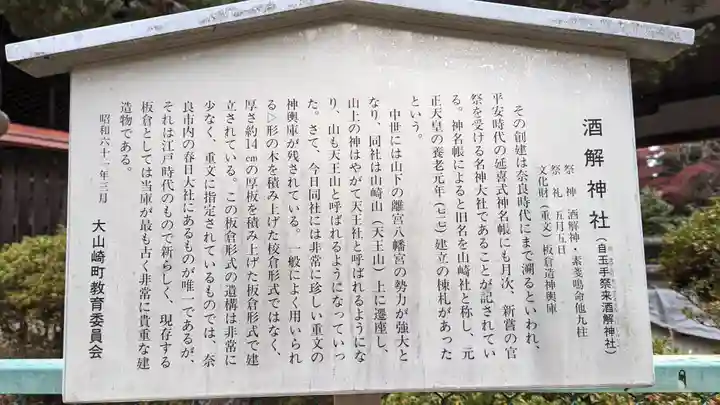 酒解神社(自玉手祭来酒解神社)
祭神 酒解神・素戔嗚命他九柱
祭礼 五月五日
文化財(重文)板倉造神輿庫
その創建は奈良時代にまで溯るといわれ、
平安時代の延喜式神名帳にも月次、新嘗の官
祭を受ける名神大社であることが記されてい
る。神名帳によると旧名を山崎社と称し、元
正天皇の養老元年(七一七)建立の棟札があった
という。
中世には山下の離宮八幡宮の勢力が強大と
なり、同社は山崎山(天王山)上に遷座し、
山上の神はやがて天王社と呼ばれるようにな
り、山も天王山と呼ばれるようになっていっ
た。さて、今日同社には非常に珍しい重文の
神輿庫が残されている。一般によく用いられ
る▷形の木を積み上げた校倉形式ではなく、
厚さ約14㎝の厚板を積み上げた板倉形式で建
立されている。この板倉形式の遺構は非常に
少なく、重文に指定されているものでは、奈
良市内の春日大社にあるものが唯一であるが、
それは江戸時代のもので新らしく、現存する
板倉としては当庫が最も古く非常に貴重な建
造物である。
昭和六十一年三月
大山崎町教育委員会